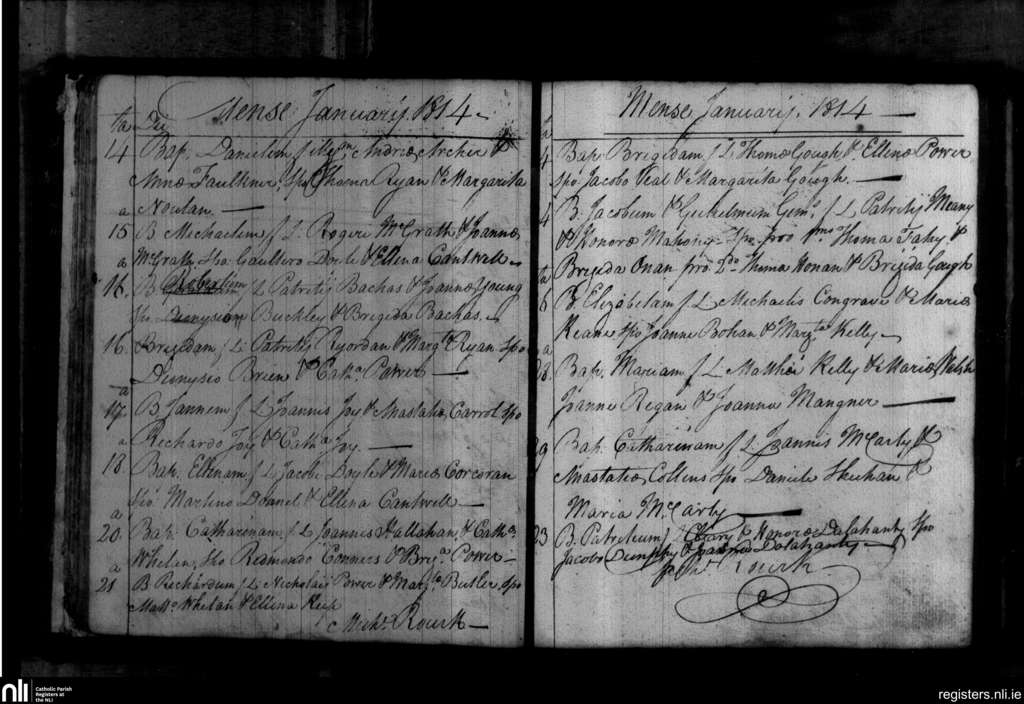 Mense Januarij 1814
14 Bap. Danielem f Andreæ Archer &
Annæ Faulkner, Spo Thoma Ryan & Margarita
a Noulan.
15 B Michaelem f L Rogeri McGrath & Joannæ
a McGrath Spo Gualtero Doyle & Ellena Cantwell
16. B f L Patritij Bachas & Joannæ Young
Spo Dionysio Buckley & Brigida Bachas.
16 Brigidam f L: Patritij Ryordan & Margta Ryan Spo
Dionysio Brien & Catha Power
a
17. B Jannem f L Joannis Joy & Anastatiæ Carrol Spo
a Rechardo Joy & Catha Joy
18 Bap. Ellenam f L Jacobi Boyle & Mariæ Corcoran
Spo Martino & Ellena Cantwell
a
20 Bap. Catharinam f L Joannis Hallahan, & Catha
a Whelan, Spo Redmundo Conners & Brigda Power
21 B Richardum f L: Nicholai Power & Margta Butler, Spo
Matto Whelan & Ellena
Michl Rourk
Mense Januarij. 1814
Bap. Brigidam f L Thomæ Gough & Ellenæ Power
Spo Jacobo Veal & Margarita Gough.
B. Jacobum & Gulielmum Gems f L Patritij Meany
& Honoræ Mahoney Spo pro 1mo Thoma Fahy &
Brigida Onan pro 2do Thoma Honan & Brigida Gough
6 B Elizabetam f L Michaelis Congrave & Mariæ
Keane Spo Joanne Bohan & Margta Kelly
a
28. Bap. Mariam f L Matthæi Kelly & Mariæ Welsh
Joanne Regan & Joanna Mangner
29 Bap. Catharinam f L Joannis McCarty &
Anastatiæ Collins Spo Daniele Sheehan &
Maria McCarty
23 B. Patritium f Cleary & Honoræ Dalahanty Spo
Jacobo Dunphy & Dalahanty
Rourk
nli
Catholic Parish
Registers at
the NLI
registers.nli.ie